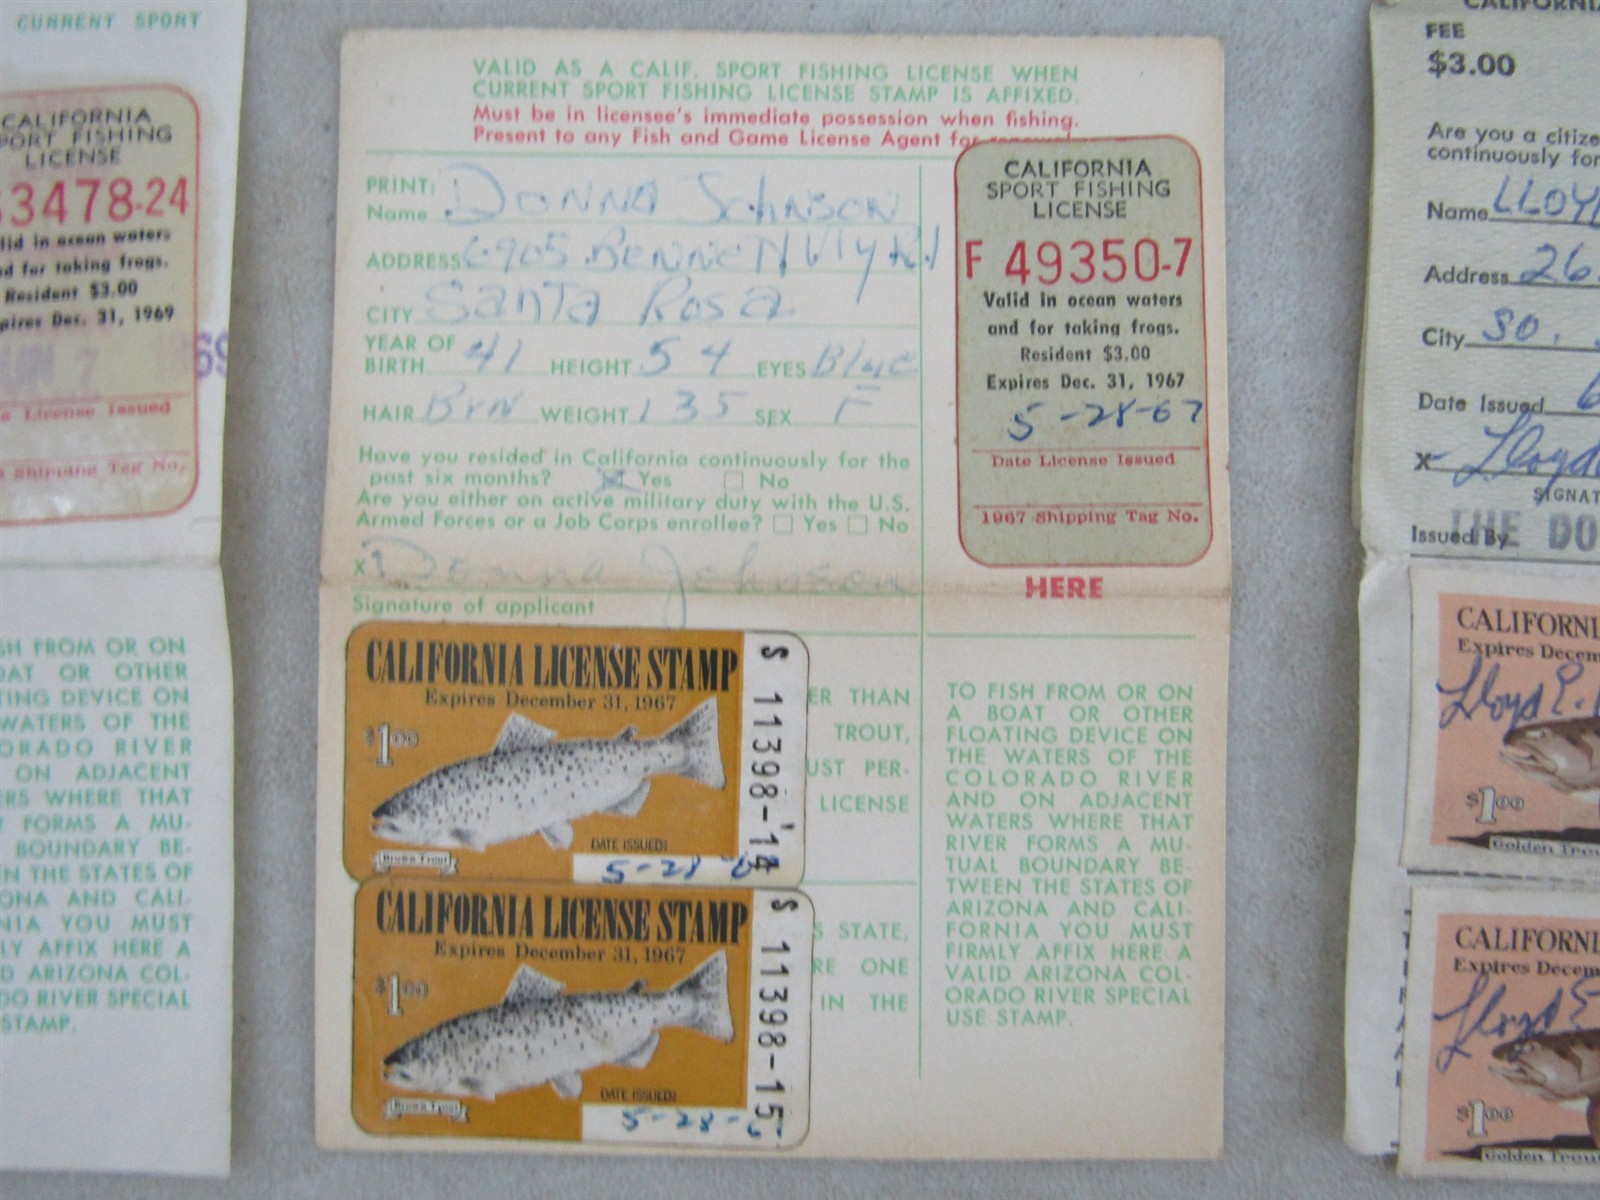 CURRENT SPORT
CALIFORNIA
SPORT FISHING
LICENSE
3478-24
in ocean waters
for taking frogs.
Resident $3.00
Dec. 31, 1969
License Issued
Shipping Tag No.
FROM OR ON
OR OTHER
DEVICE ON
WATERS OF THE
RIVER
ON ADJACENT
WHERE THAT
FORMS A MU-
BOUNDARY BE-
THE STATES OF
AND CALI-
YOU MUST
AFFIX HERE A
ARIZONA COL-
RIVER SPECIAL
STAMP.
VALID AS A CALIF. SPORT FISHING LICENSE WHEN
CURRENT SPORT FISHING LICENSE STAMP IS AFFIXED.
Must be in licensee's immediate possession when fishing.
Present to any Fish and Game License Agent for renewal
PRINT:
Name Donna Johnson
ADDRESS 6905 Bennett Vly Rd
CITY Santa Rosa
YEAR OF
BIRTH 41 HEIGHT 5 4 EYES Blue
HAIR Brn WEIGHT 135 SEX F
Have you resided in California continuously for the
past six months? Yes No
Are you either on active military duty with the U.S.
Armed Forces or a Job Corps enrollee? Yes No
X Donna Johnson
Signature of applicant
CALIFORNIA
SPORT FISHING
LICENSE
F 49350-7
Valid in ocean waters
and for taking frogs.
Resident $3.00
Expires Dec. 31, 1967
5-28-67
Date License Issued
1967 Shipping Tag No.
HERE
CALIFORNIA LICENSE STAMP
Expires December 31, 1967
$1.00
Brown Trout
DATE ISSUED:
5-28
S 11398-14
CALIFORNIA LICENSE STAMP
Expires December 31, 1967
$1.00
Brown Trout
DATE ISSUED:
5-28-6
S 11398-15
THAN
TROUT,
PER-
LICENSE
STATE,
ONE
IN THE
TO FISH FROM OR ON
A BOAT OR OTHER
FLOATING DEVICE ON
THE WATERS OF THE
COLORADO RIVER
AND ON ADJACENT
WATERS WHERE THAT
RIVER FORMS A MU-
TUAL BOUNDARY BE-
TWEEN THE STATES OF
ARIZONA AND CALI-
FORNIA YOU MUST
FIRMLY AFFIX HERE A
VALID ARIZONA COL-
ORADO RIVER SPECIAL
USE STAMP.
FEE
$3.00
Are you a
continuously for
Name LLOY
Address 26
City SO.
Date Issued 6
X Lloyd
Issued By THE DO
CALIFORNI
Expires Decem
Lloyd E.
$1.00
Golden Trou
CALIFORNI
Expires Decem
Lloyd E
$1.00
Golden Trou